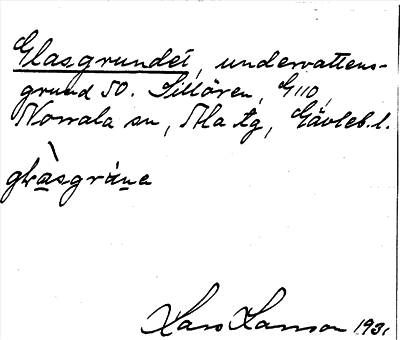 Glasgrundet, undervattens-
grund SO. Sillören, G110,
Norrala sn, Ala tg, Gävleb. l.
glàsgruna
Lars Larsson 1931